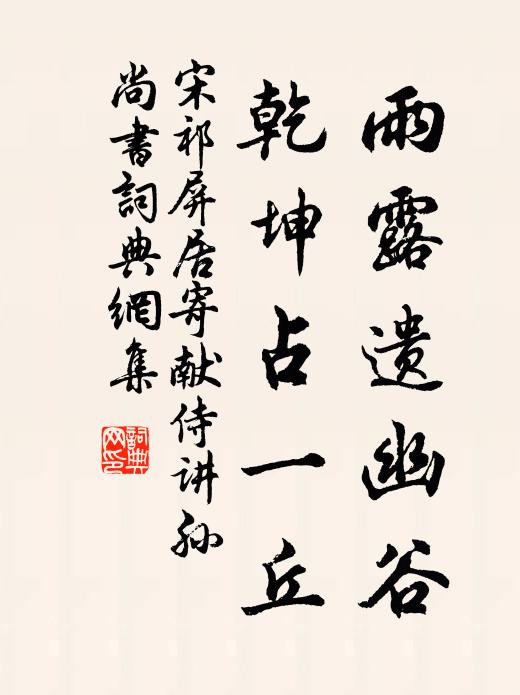 雨露遗幽谷
乾坤占一丘
宋祁屏居寄献侍讲孙
尚書詞典網集
詞典
网印